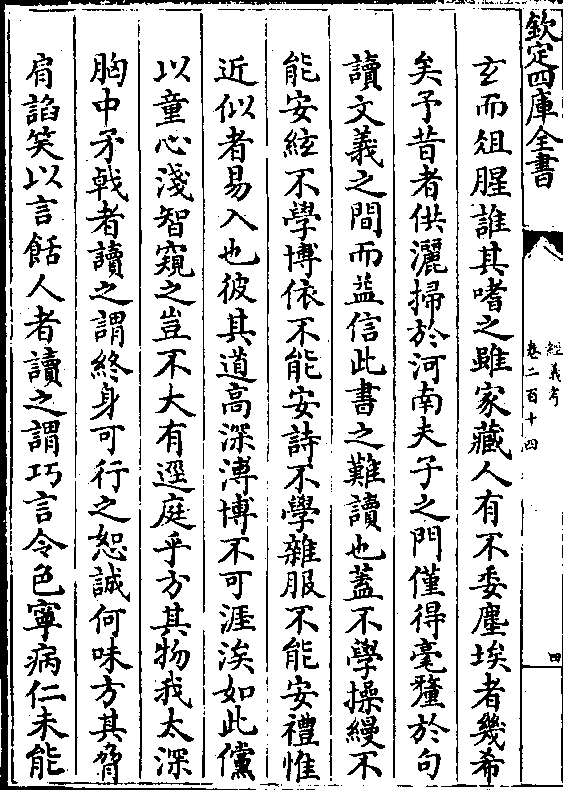 欽定四庫全書
經義考
卷二百十四
四
玄而俎腥誰其嗜之雖家藏人有不委塵埃者幾希
矣予昔者供灑掃於河南夫子之門僅得毫釐於句
讀文義之間而益信此書之難讀也蓋不學操縵不
能安絃不學博依不能安詩不學雜服不能安禮惟
近似者易入也彼其道高深溥博不可涯涘如此儻
以童心淺智窺之豈不大有逕庭乎方其物我太深
胸中矛戟者讀之謂終身可行之恕誠何味方其脅
肩諂笑以言餂人者讀之謂巧言令色寧病仁未能